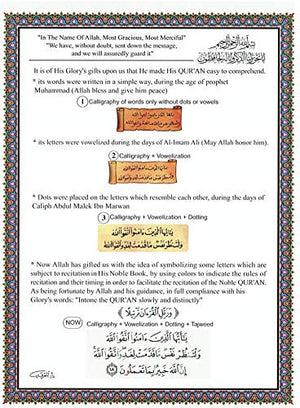 "In The Name Of Allah, Most Gracious, Most Merciful"
"We have, without doubt, sent down the message,
and we will assuredly guard it"
بسم الله الرحمن الرحيم
It is of His Glory's gifts upon us that He made His QUR'AN easy to comprehend.
* its words were written in a simple way, during the age of prophet
Muhammad (Allah bless and give him peace)
1 Calligraphy of words only without dots or vowels
* its letters were vowelized during the days of Al-Imam Ali (May Allah honor him).
2 Calligraphy + Vowelization
* Dots were placed on the letters which resemble each other, during the days of
Caliph Abdul Malek Ibn Marwan
3 Calligraphy + Vowelization + Dotting
يَٰٓأَيُّهَا ٱلَّذِينَ ءَامَنُوا۟ ٱتَّقُوا۟ ٱللَّهَ
وَلْتَنظُرْ نَفْسٌ مَّا قَدَّمَتْ لِغَدٍ وَٱتَّقُوا۟ ٱللَّهَ
* Now Allah has gifted us with the idea of symbolizing some letters which are
subject to recitation in His Noble Book, by using colors to indicate the rules of
recitation and their timing in order to facilitate the recitation of the Noble QUR'AN.
As being fortunate by Allah and his guidance, in full compliance with his
Glory's words: "Intone the QUR'AN slowly and distinctly"
وَرَتِّلِ ٱلْقُرْءَانَ تَرْتِيلًا
NOW Calligraphy + Vowelization + Dotting + Tajweed
يَٰٓأَيُّهَا ٱلَّذِينَ ءَامَنُوا۟ ٱتَّقُوا۟ ٱللَّهَ
وَلْتَنظُرْ نَفْسٌ مَّا قَدَّمَتْ لِغَدٍ وَٱتَّقُوا۟ ٱللَّهَ
إِنَّ ٱللَّهَ خَبِيرٌۢ بِمَا تَعْمَلُونَ ١٨